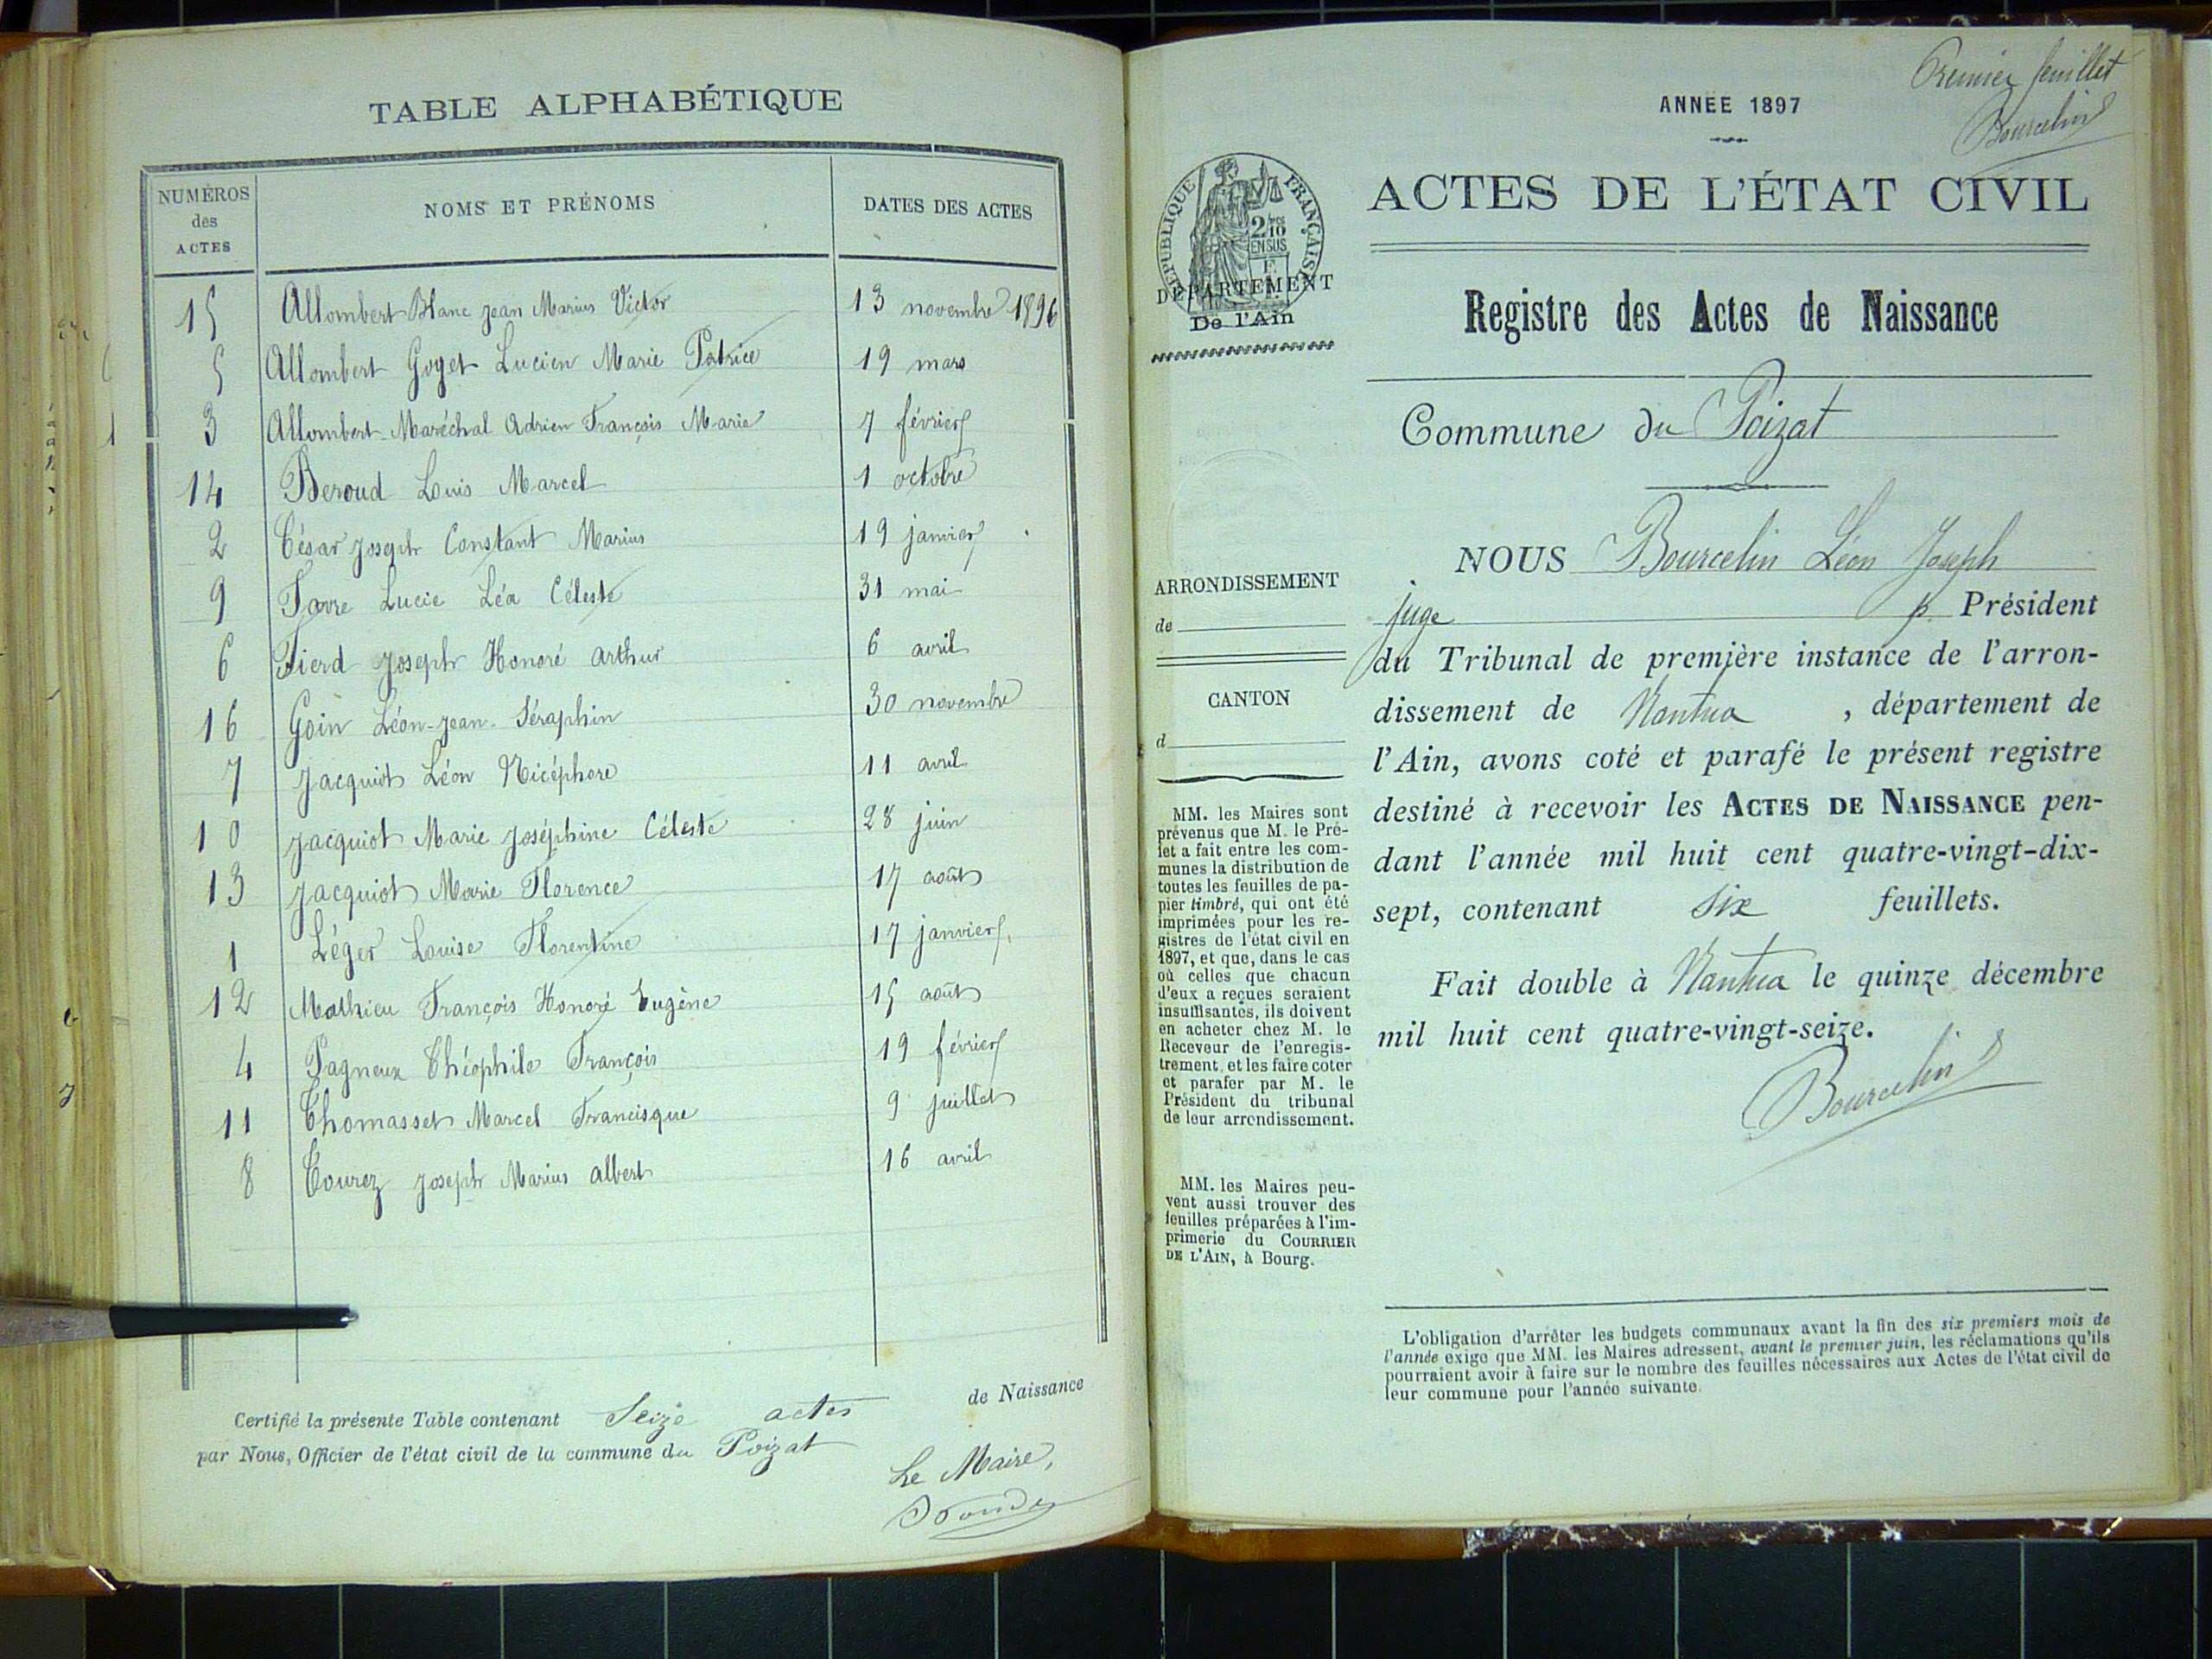 TABLE ALPHABÉTIQUE
NUMÉROS des ACTES NOMS ET PRÉNOMS DATES DES ACTES
15 Allombert Blanc Jean Marius Victor 13 novembre 1896
5 Allombert Goyet Lucien Marie Patrice 19 mars
3 Allombert-Maréchal Adrien François Marie 7 février
14 Beroud Louis Marcel 1 octobre
2 César Joseph Constant Marius 19 janvier
9 Favre Lucie Léa Céleste 31 mai
6 Fierd Joseph Honoré Arthur 6 avril
16 Goin Léon-Jean-Séraphin 30 novembre
7 Jacquiot Léon Nicéphore 11 avril
10 Jacquiot Marie Joséphine Céleste 28 juin
13 Jacquiot Marie Florence 17 août
1 Léger Louise Florentine 17 janvier
12 Mathieu François Honoré Eugène 15 août
4 Pagneux Théophile François 19 février
11 Thomasset Marcel Francisque 9 juillet
8 Tourez Joseph Marius Albert 16 avril
Certifié la présente Table contenant Seize actes de Naissance
par Nous, Officier de l'état civil de la commune du Poizat
Le Maire,
Premier feuillet
Bourcelin
ANNÉE 1897
ACTES DE L'ÉTAT CIVIL
RÉPUBLIQUE FRANÇAISE
2/10 EN SUS
DÉPARTEMENT
De l'Ain
Registre des Actes de Naissance
Commune du Poizat
ARRONDISSEMENT
de
CANTON
d
NOUS Bourcelin Léon Joseph
juge p. Président
du Tribunal de première instance de l'arron-
dissement de Nantua , département de
l'Ain, avons coté et parafé le présent registre
destiné à recevoir les ACTES DE NAISSANCE pen-
dant l'année mil huit cent quatre-vingt-dix-
sept, contenant six feuillets.
Fait double à Nantua le quinze décembre
mil huit cent quatre-vingt-seize.
Bourcelin
MM. les Maires sont
prévenus que M. le Pré-
fet a fait entre les com-
munes la distribution de
toutes les feuilles de pa-
pier timbré, qui ont été
imprimées pour les re-
gistres de l'état civil en
1897, et que, dans le cas
où celles que chacun
d'eux a reçues seraient
insuffisantes, ils doivent
en acheter chez M. le
Receveur de l'enregis-
trement, et les faire coter
et parafer par M. le
Président du tribunal
de leur arrondissement.
MM. les Maires peu-
vent aussi trouver des
feuilles préparées à l'im-
primerie du COURRIER
DE L'AIN, à Bourg.
L'obligation d'arrêter les budgets communaux avant la fin des six premiers mois de
l'année exige que MM. les Maires adressent, avant le premier juin, les réclamations qu'ils
pourraient avoir à faire sur le nombre des feuilles nécessaires aux Actes de l'état civil de
leur commune pour l'année suivante.